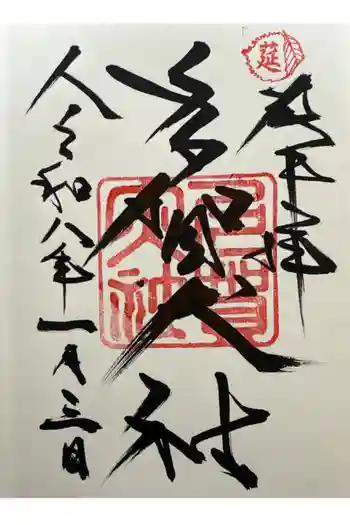 莚
奉拝
多賀大社
多賀大社
令和八年一月三日